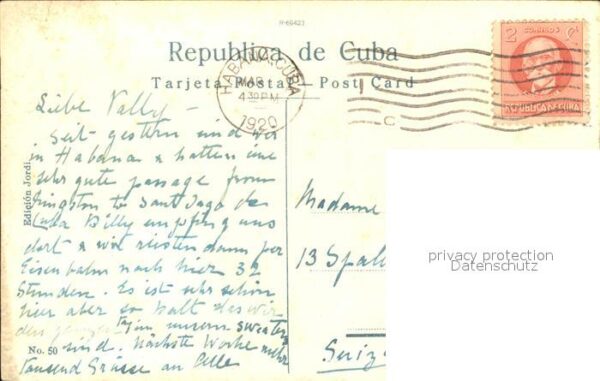 H-60423
Republica de Cuba
Tarjeta Postal - Post Card
HABANA, CUBA
MAR
4 30 PM
1920
2 CORREOS Cs
REPUBLICA DE CUBA
C
Edición Jordi
No. 50
Liebe Vally –
Seit gestern sind wir
in Habana & hatten eine
sehr gute passage from
Kingston to Sant Jago de
Cuba Billy empfing uns
dort & wir reisten dann per
Eisenbahn nach hier 32
Stunden. Es ist sehr schön
hier aber so kalt das wir
den in unsern sweaters
sind. Nächste Woche mehr
Tausend Grüsse an Alle
Madame
13 Spal
Suiz
privacy protection
Datenschutz